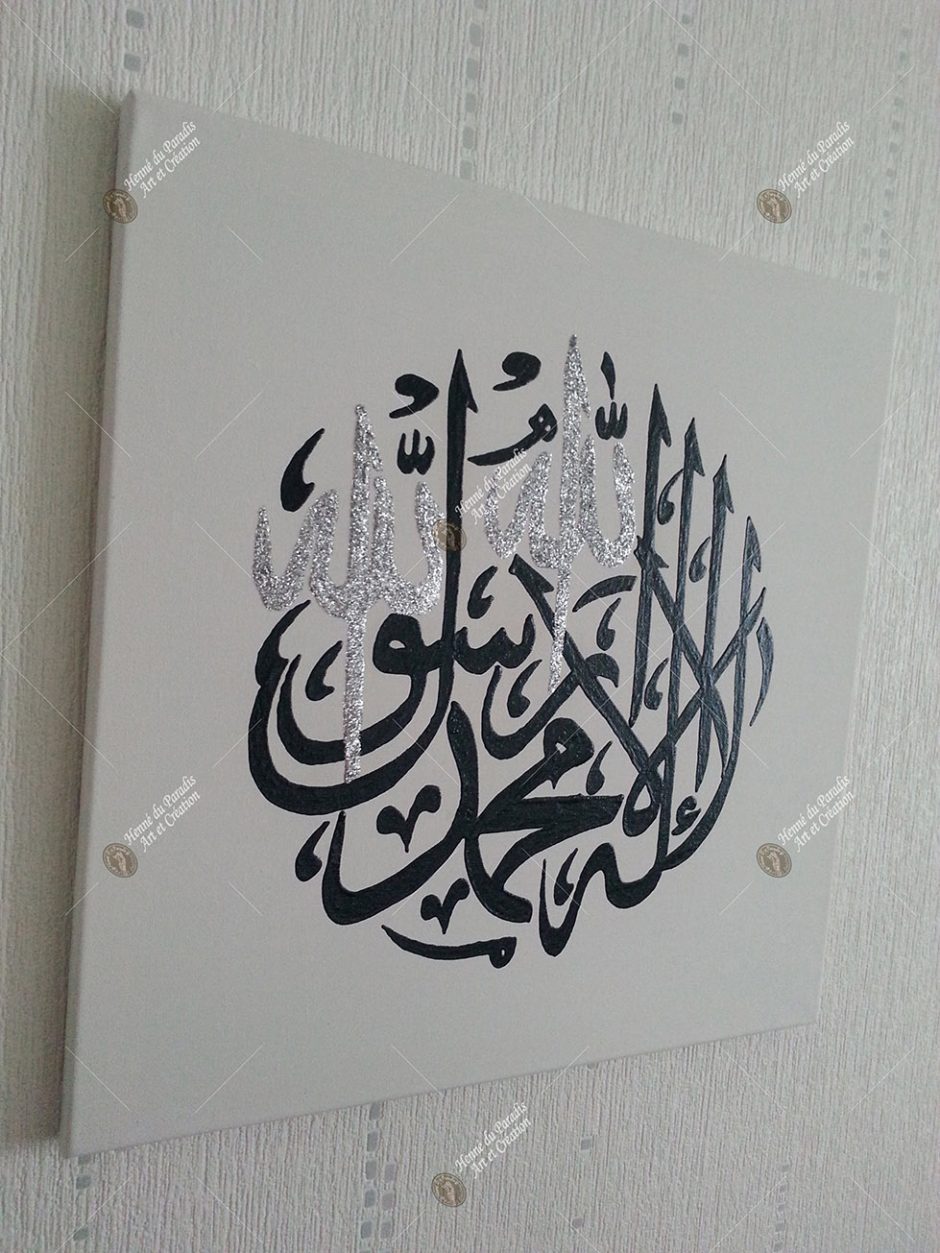 لا إله إلا الله محمد رسول الله
Henné du Paradis
Art et Création
Henné du Paradis
Art et Création
Henné du Paradis
Art et Création
Henné du Paradis
Art et Création
Henné du Paradis
Art et Création
Henné du Paradis
Art et Création